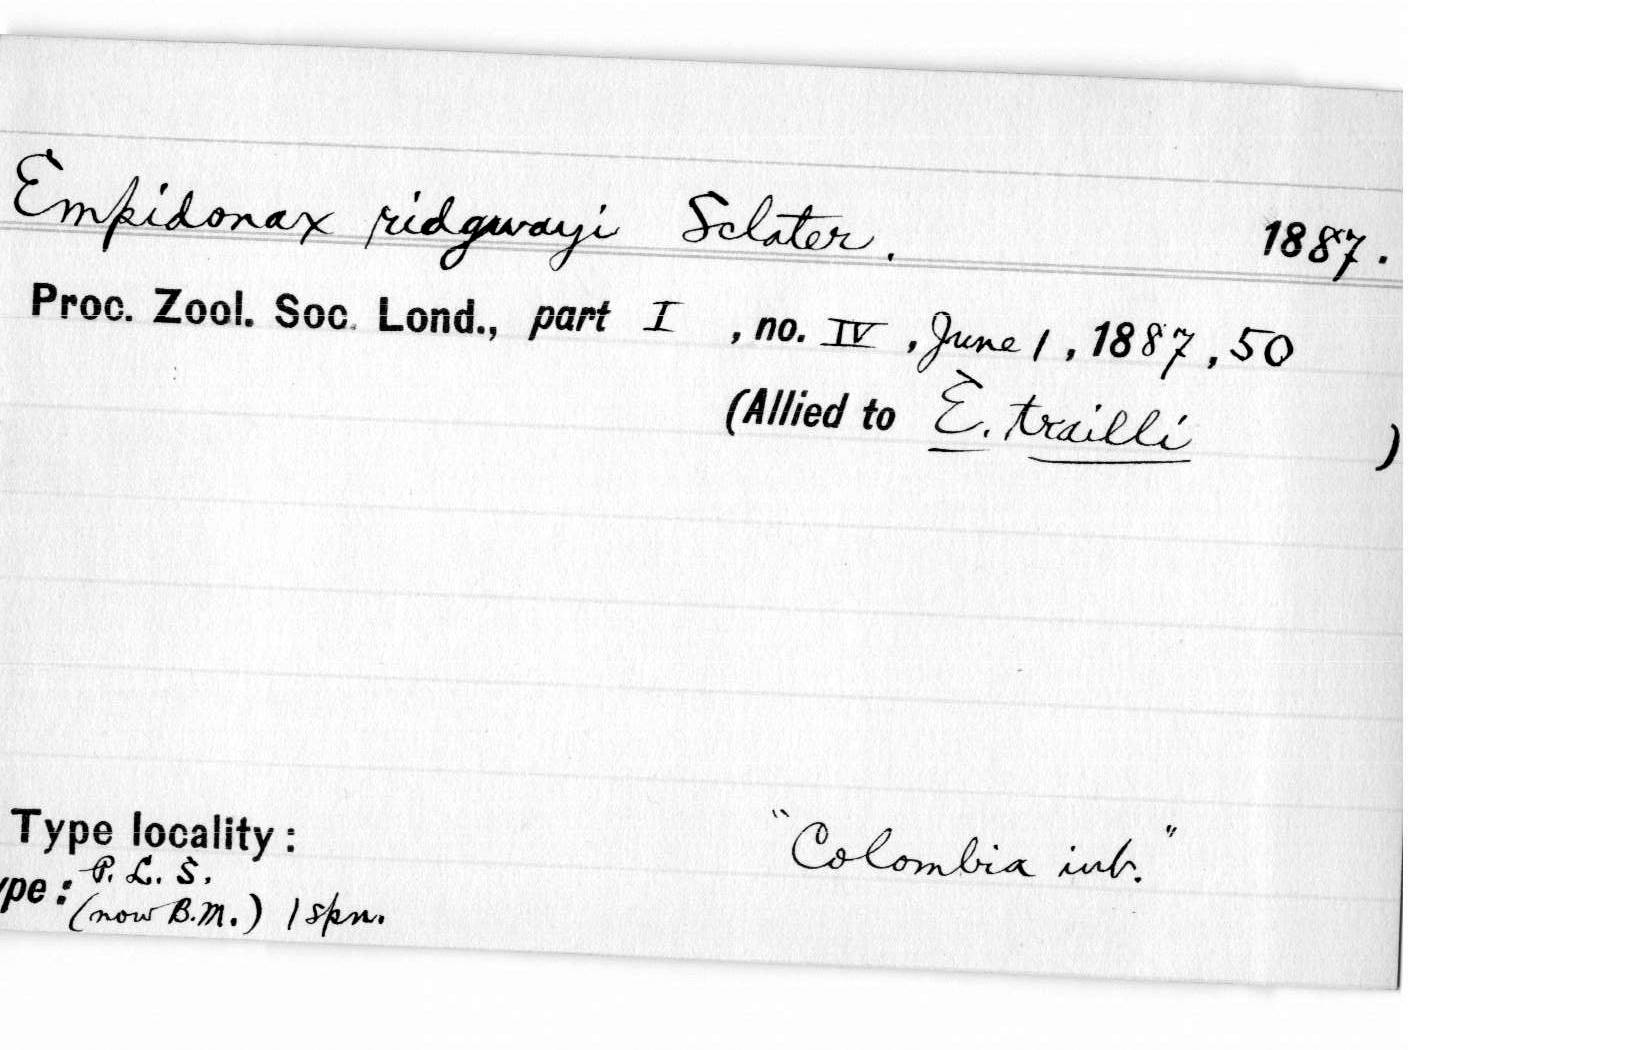 Empidonax ridgwayi Sclater. 1887.
Proc. Zool. Soc. Lond., part I, no. IV, June 1, 1887, 50
(Allied to E. trailli )
Type locality: "Colombia int."
ype: P. L. S.
(now B.M.) 1 spn.